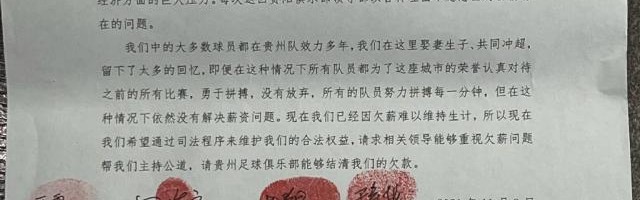 在的问题。
我们中的大多数球员都在贵州队效力多年,我们在这里娶妻生子、共同冲超,
留下了太多的回忆,即便在这种情况下所有队员都为了这座城市的荣誉认真对待
之前的所有比赛,勇于拼搏,没有放弃,所有的队员努力拼搏每一分钟,但在这
种情况下依然没有解决薪资问题。现在我们已经因欠薪难以维持生计,所以现在
我们希望通过司法程序来维护我们的合法权益,请求相关领导能够重视欠薪问题
帮我们主持公道,请贵州足球俱乐部能够结清我们的欠款。